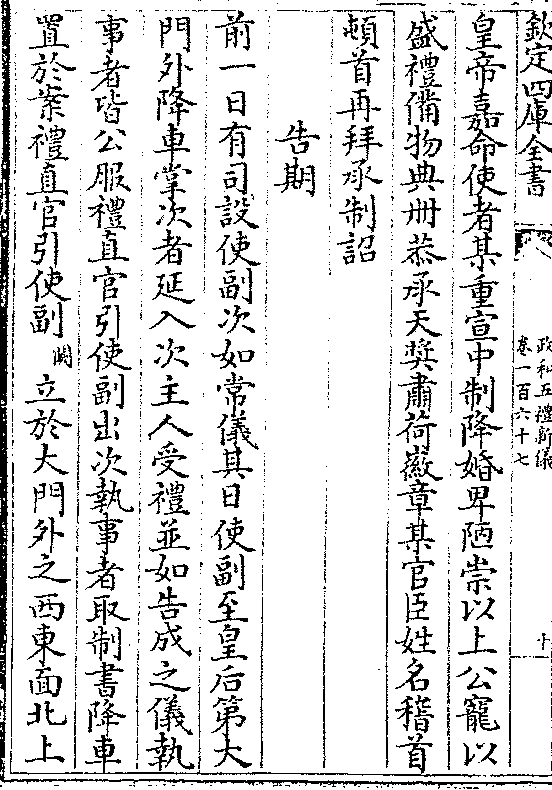 欽定四庫全書
政和五禮新儀
卷一百六十七
十
皇帝嘉命使者某重宣中制降婚卑陋崇以上公寵以
盛禮備物典册恭承天奬肅荷徽章某官臣姓名稽首
頓首再拜承制詔
告期
前一日有司設使副次如常儀其日使副至皇后第大
門外降車掌次者延入次主人受禮並如告成之儀執
事者皆公服禮直官引使副出次執事者取制書降車
置於案禮直官引使副闕立於大門外之西東面北上